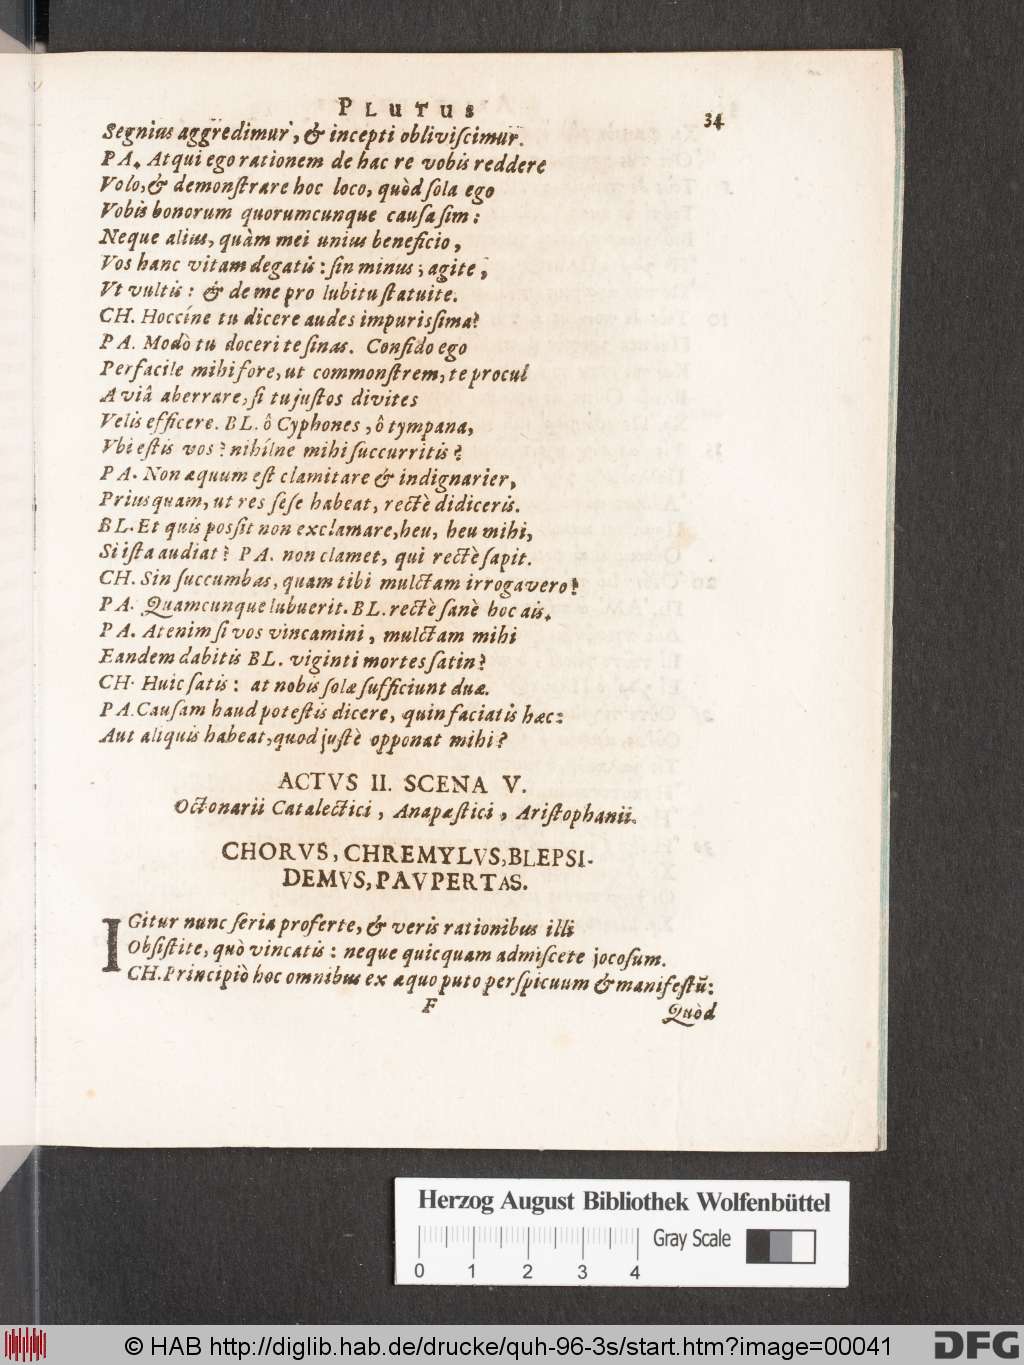 PLUTUS 34
Segnius aggredimur, & incepti obliviſcimur.
PA. Atqui ego rationem de hac re vobis reddere
Volo, & demonſtrare hoc loco, quòd ſola ego
Vobis bonorum quorumcunque cauſa ſim:
Neque alius, quàm mei unius beneficio,
Vos hanc vitam degatis: ſin minus; agite,
Vt vultis: & de me pro lubitu ſtatuite.
CH. Hoccíne tu dicere audes impurisſima?
PA. Modò tu doceri te ſinas. Confido ego
Perfacile mihi fore, ut commonſtrem, te procul
A viâ aberrare, ſi tu juſtos divites
Velis efficere. BL. ô Cyphones, ô tympana,
Vbi eſtis vos? nihílne mihi ſuccurritis?
PA. Non æquum eſt clamitare & indignarier,
Priusquam, ut res ſeſe habeat, rectè didiceris.
BL. Et quis posſit non exclamare, heu, heu mihi,
Si iſta audiat? PA. non clamet, qui rectè ſapit.
CH. Sin ſuccumbas, quam tibi mulctam irrogavero?
PA. Quamcunque lubuerit. BL. rectè ſanè hoc ais.
PA. Atenim ſi vos vincamini, mulctam mihi
Eandem dabitis BL. viginti mortes ſatin?
CH. Huic ſatis: at nobis ſolæ ſufficiunt duæ.
PA. Cauſam haud poteſtis dicere, quin faciatis hæc:
Aut aliquis habeat, quod juſtè opponat mihi?
ACTVS II. SCENA V.
Octonarii Catalectici, Anapæſtici, Ariſtophanii.
CHORVS, CHREMYLVS, BLEPSI-
DEMVS, PAVPERTAS.
IGitur nunc ſeria proferte, & veris rationibus illi
Obſiſtite, quò vincatis: neque quicquam admiſcete jocoſum.
CH. Principiò hoc omnibus ex æquo puto perſpicuum & manifeſtũ:
F Quòd
Herzog August Bibliothek Wolfenbüttel
Gray Scale
0 1 2 3 4
© HAB http://diglib.hab.de/drucke/quh-96-3s/start.htm?image=00041
DFG